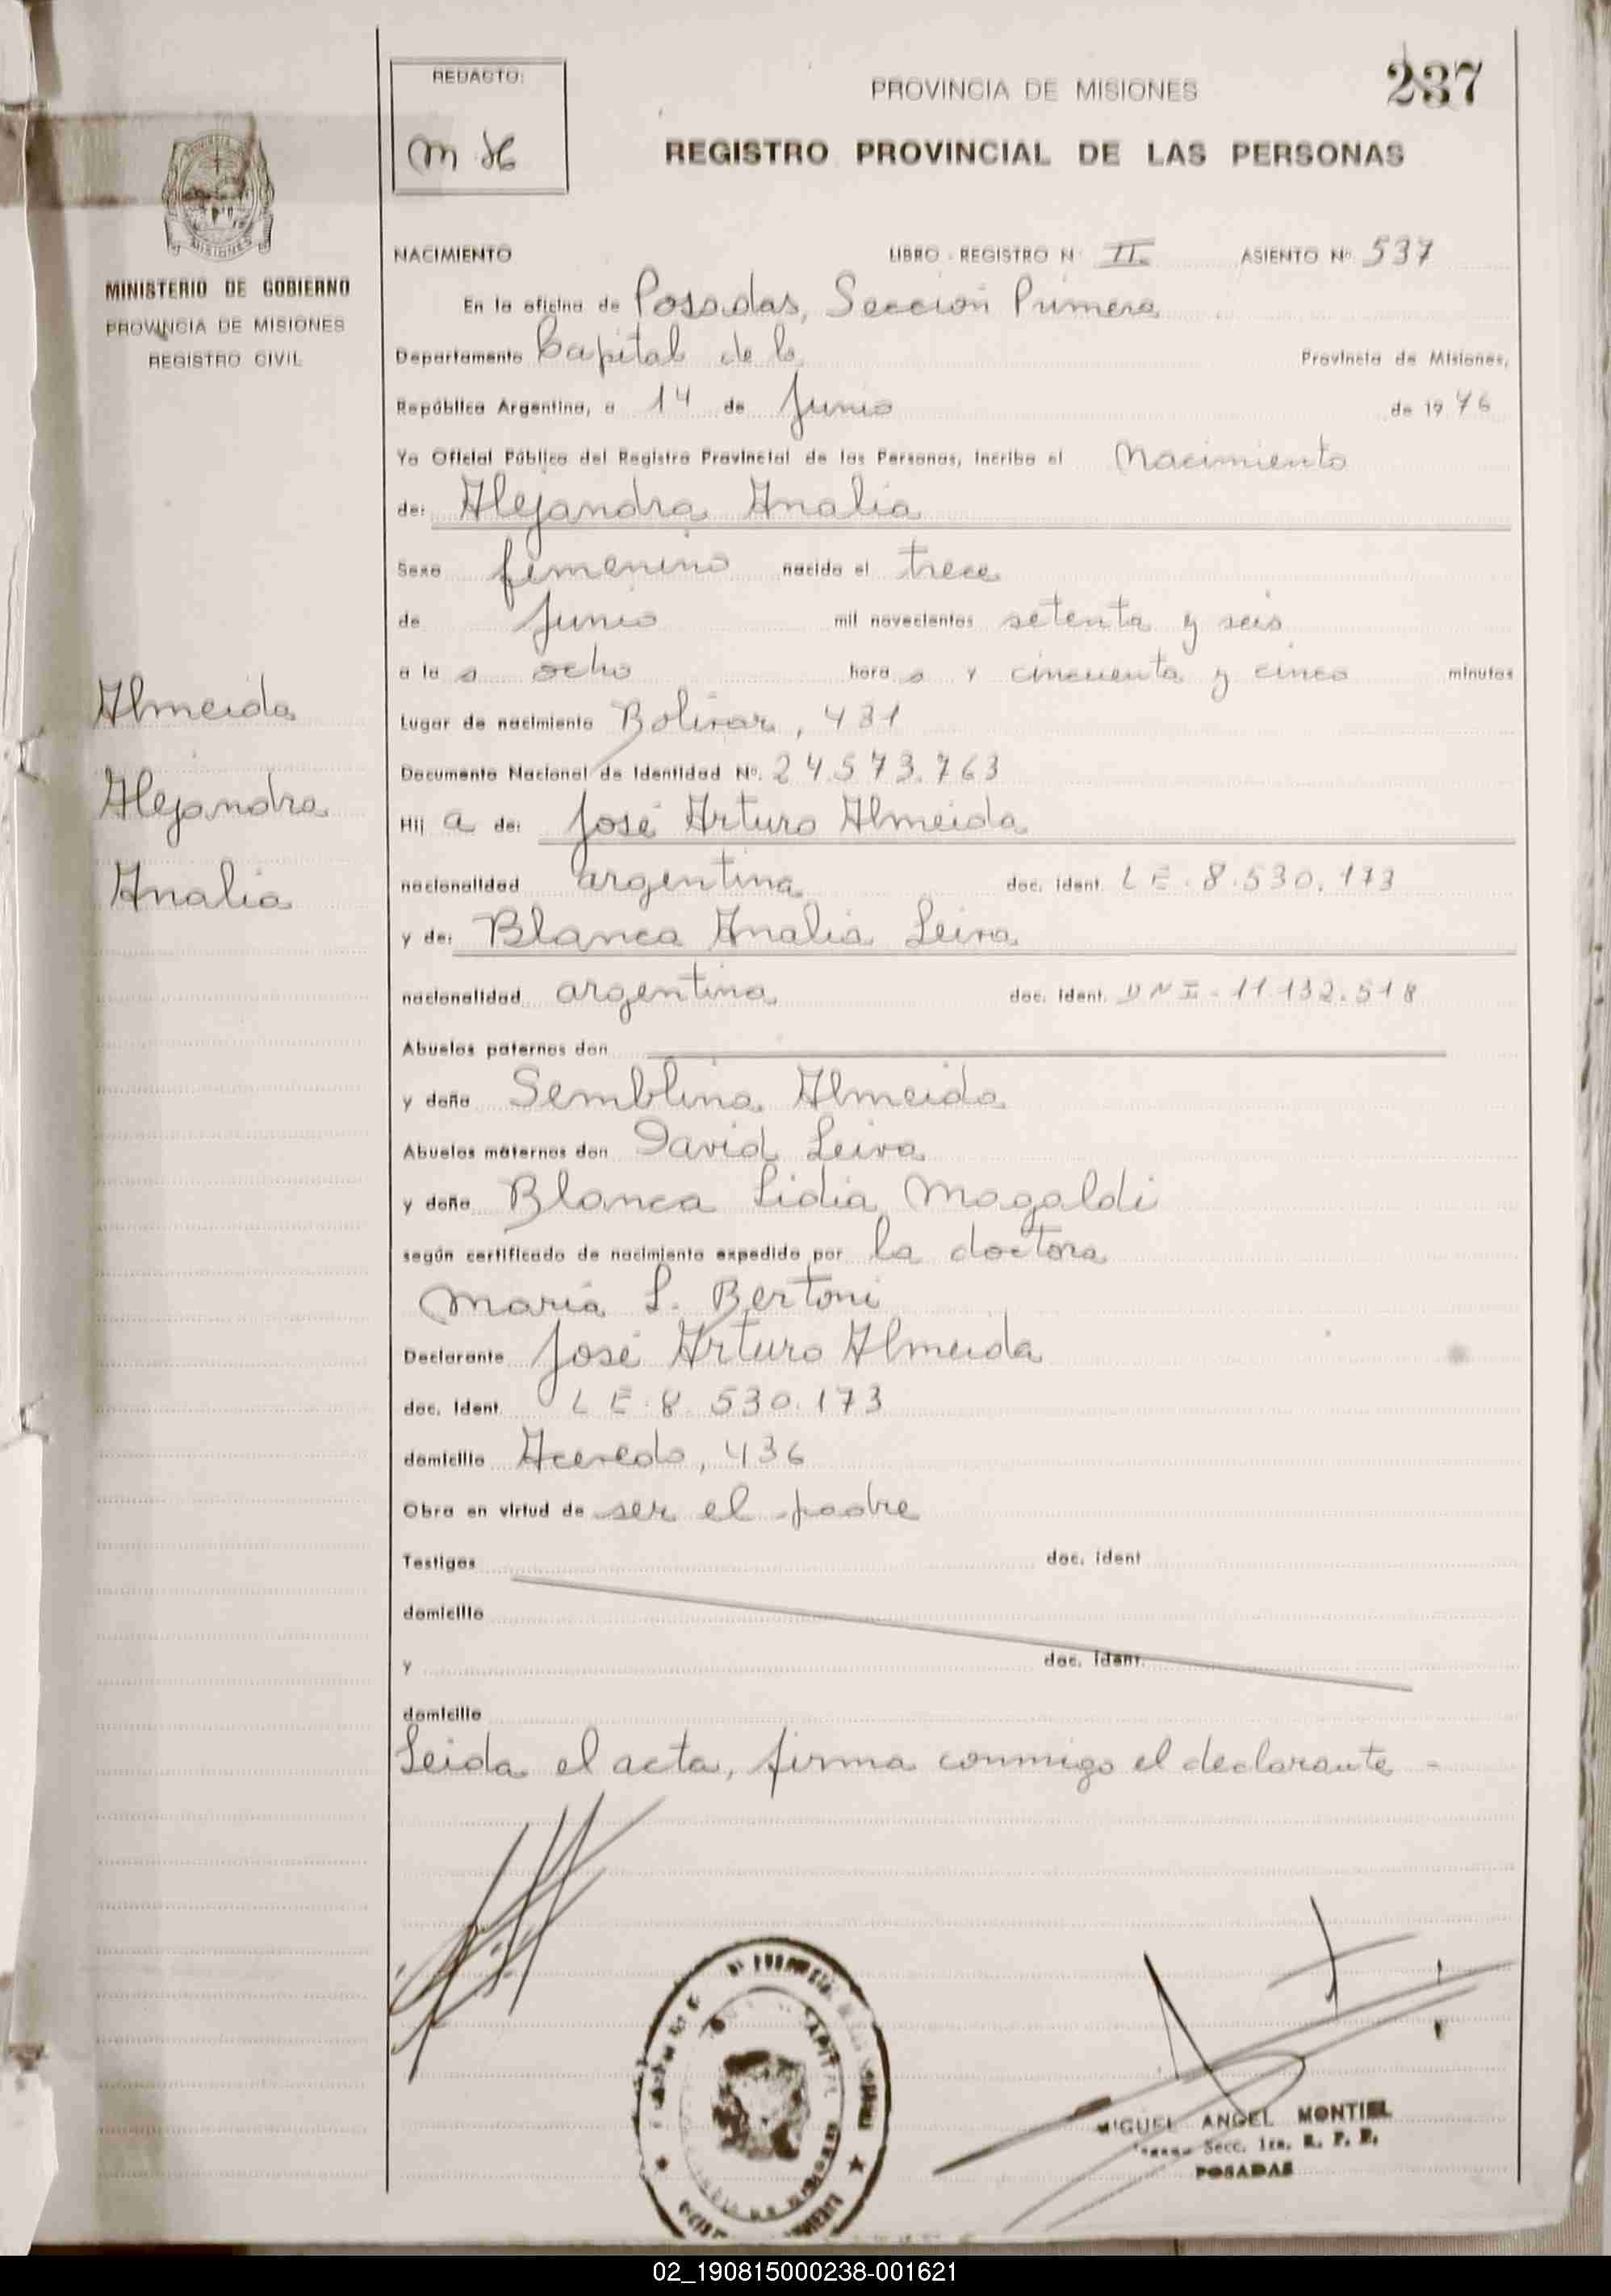 REDACTO:
m
PROVINCIA DE MISIONES
237
REGISTRO PROVINCIAL DE LAS PERSONAS
MISIONES
MINISTERIO DE GOBIERNO
PROVINCIA DE MISIONES
REGISTRO CIVIL
NACIMIENTO LIBRO - REGISTRO N. II. ASIENTO Nº 537
En la oficina de Posadas, Sección Primera
Departamento Capital de la Provincia de Misiones,
República Argentina, a 14 de Junio de 1976
Yo Oficial Público del Registro Provincial de las Personas, incribo el Nacimiento
de: Alejandra Analia
Sexo femenino nacido el trece
de Junio mil novecientos setenta y seis
a la s ocho hora s y cincuenta y cinco minutos
Almeida
Lugar de nacimiento Bolivar, 431
Documento Nacional de Identidad Nº. 24.573.763
Alejandra
Hij a de: José Arturo Almeida
Analia
nacionalidad argentina doc. ident. LE. 8.530.173
y de: Blanca Analia Leiva
nacionalidad argentina doc. ident. DNI - 11.132.518
Abuelos paternos don
y doña Semblina Almeida
Abuelos maternos don David Leiva
y doña Blanca Lidia Magaldi
según certificado de nacimiento expedido por la doctora
María L. Bertoni
Declarante José Arturo Almeida
doc. ident. LE. 8.530.173
domicilio Acevedo, 436
Obra en virtud de ser el padre
Testigos doc. ident
domicilio
y doc. ident.
domicilio
Leida el acta, firma conmigo el declarante -
MIGUEL ANGEL MONTIEL
Secc. 1ra. R. P. P.
POSADAS
02_190815000238-001621